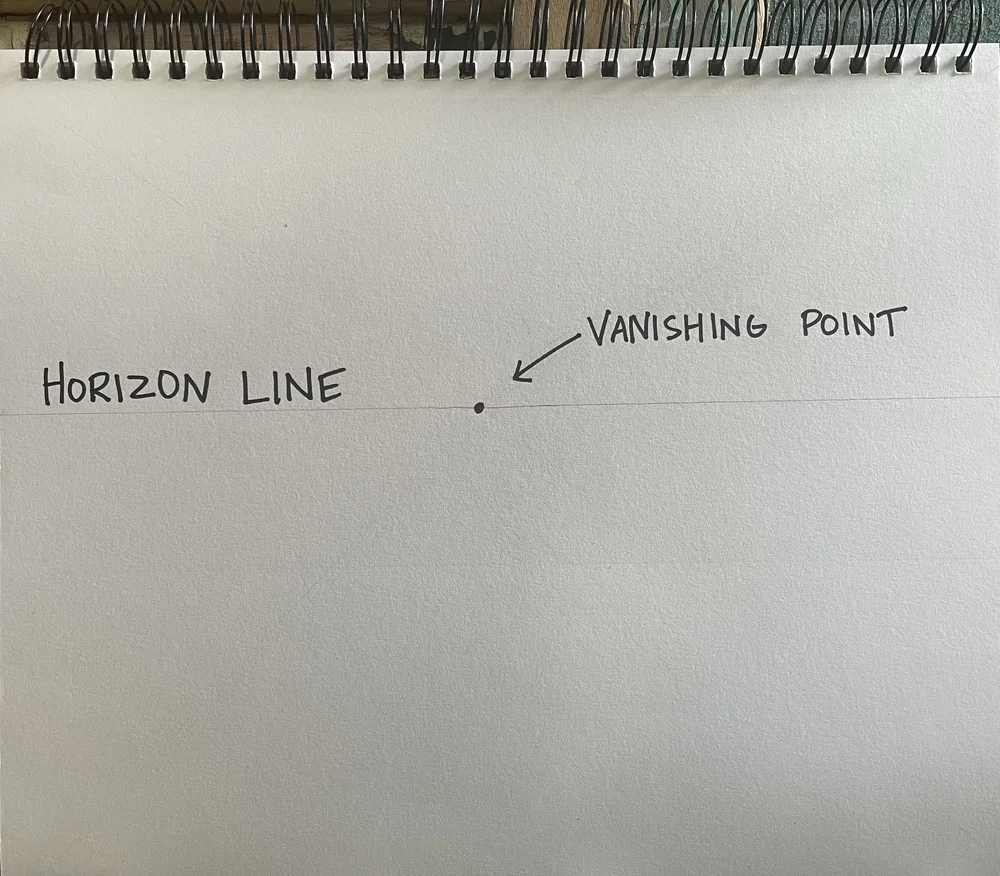 VANISHING POINT
HORIZON LINE